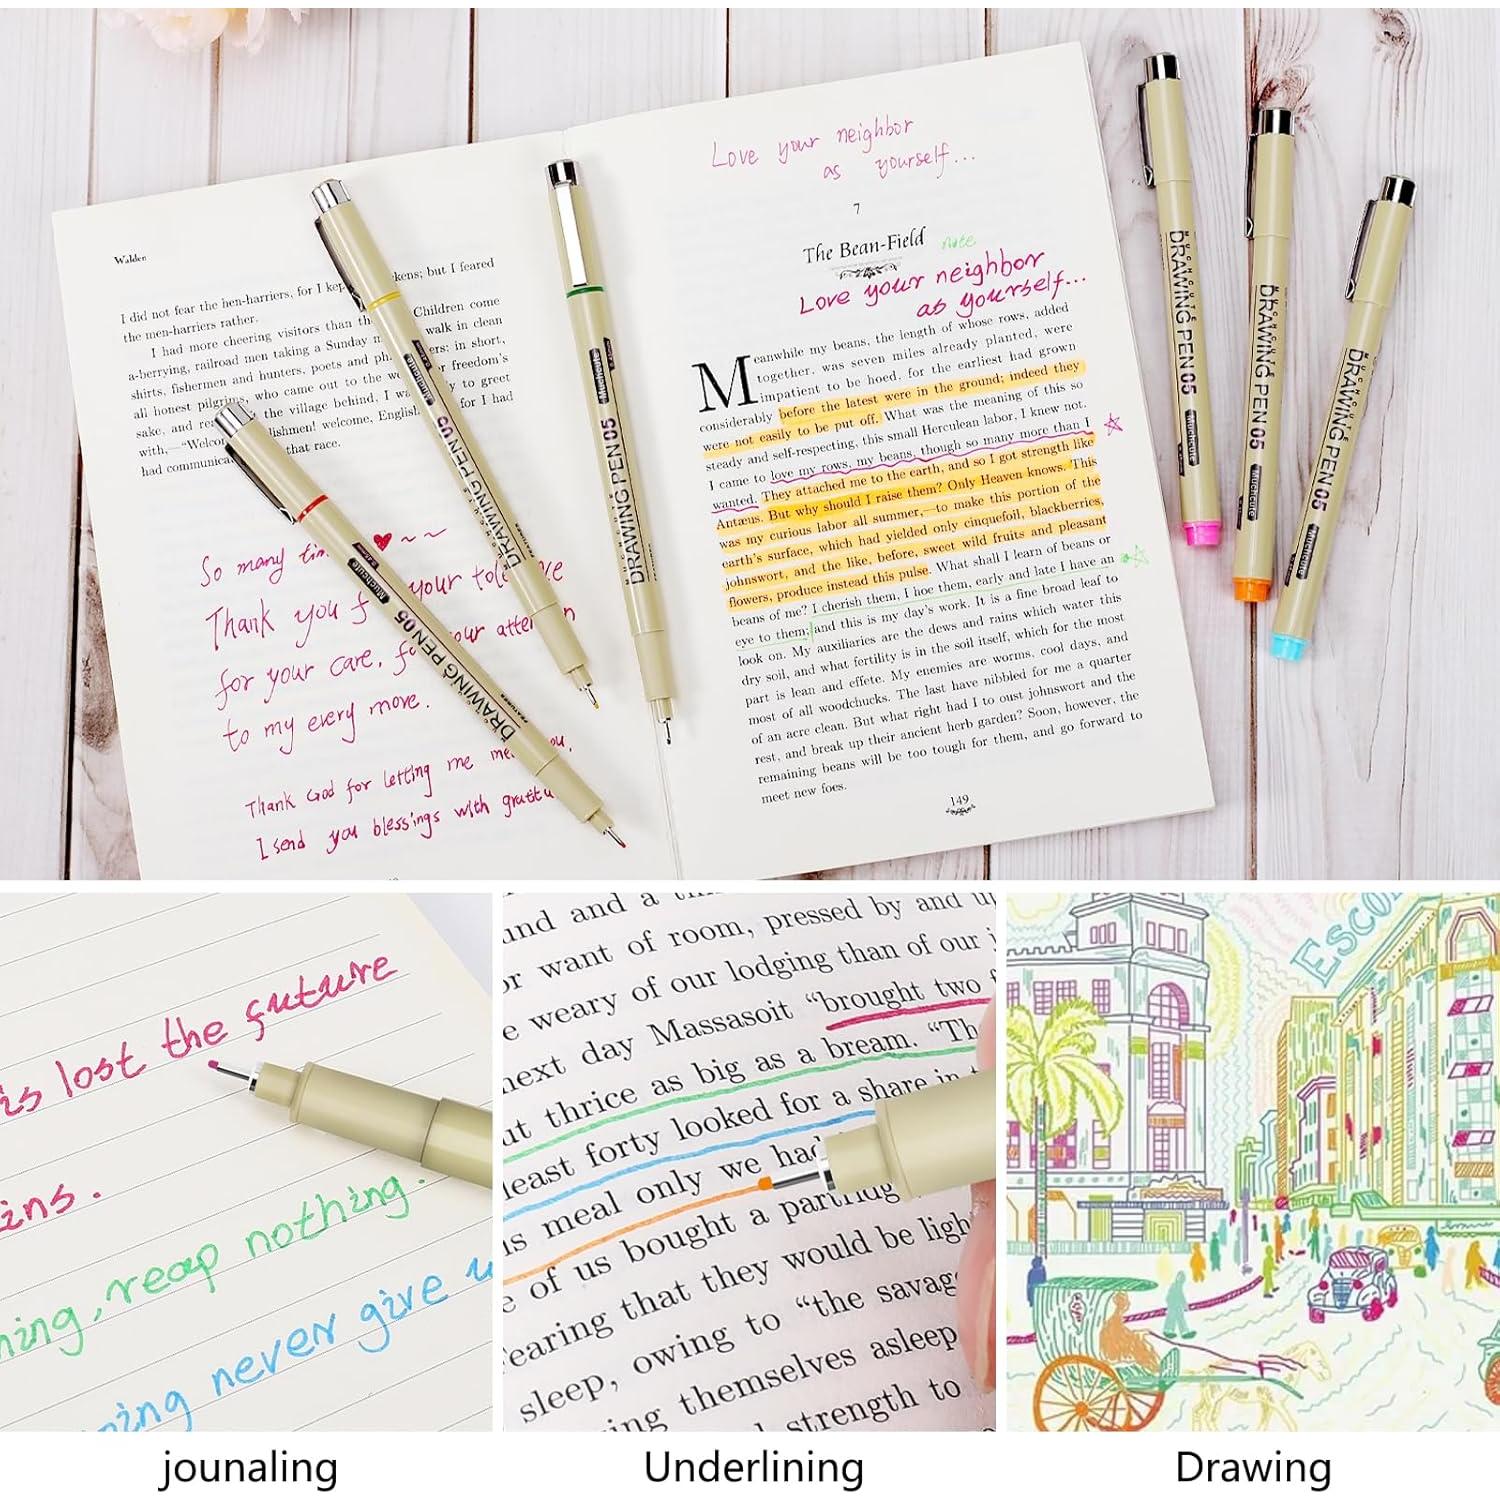 Walden
I did not fear the hen-harriers, for I kep kens; but I feared
the men-harriers rather.
I had more cheering visitors than th Children come
a-berrying, railroad men taking a Sunday m walk in clean
shirts, fishermen and hunters, poets and ph ers: in short,
all honest pilgrims, who came out to the wo r freedom's
sake, and re the village behind, I wa y to greet
with,—"Welcom lishmen! welcome, English for I had
had communica that race.
So many tim
Thank you f your tole ce
for your care, fo our atten n
to my every move.
Thank God for letting me me ou,
I send you blessings with gratitu
Love your neighbor
as yourself...
7
The Bean-Field note
Love your neighbor
as yourself...
Meanwhile my beans, the length of whose rows, added
together, was seven miles already planted, were
impatient to be hoed, for the earliest had grown
considerably before the latest were in the ground; indeed they
were not easily to be put off. What was the meaning of this so
steady and self-respecting, this small Herculean labor, I knew not.
I came to love my rows, my beans, though so many more than I
wanted. They attached me to the earth, and so I got strength like
Antæus. But why should I raise them? Only Heaven knows. This
was my curious labor all summer,—to make this portion of the
earth's surface, which had yielded only cinquefoil, blackberries,
johnswort, and the like, before, sweet wild fruits and pleasant
flowers, produce instead this pulse. What shall I learn of beans or
beans of me? I cherish them, I hoe them, early and late I have an
eye to them; and this is my day's work. It is a fine broad leaf to
look on. My auxiliaries are the dews and rains which water this
dry soil, and what fertility is in the soil itself, which for the most
part is lean and effete. My enemies are worms, cool days, and
most of all woodchucks. The last have nibbled for me a quarter
of an acre clean. But what right had I to oust johnswort and the
rest, and break up their ancient herb garden? Soon, however, the
remaining beans will be too tough for them, and go forward to
meet new foes.
149
DRAWING PEN 05 Muchcute
DRAWING PEN 05 Muchcute
DRAWING PEN 05 Muchcute
MUCHCUTE DRAWING PEN 05 Muchcute
MUCHCUTE DRAWING PEN 05 Muchcute
MUCHCUTE DRAWING PEN 05 Muchcute
is lost the future
ins.
ning, reap nothing.
ning never give u
und and a
or want of room, pressed by and u
e weary of our lodging than of our
next day Massasoit "brought two
ut thrice as big as a bream. "Th
least forty looked for a share in
is meal only we had
e of us bought a partridg
earing that they would be ligh
sleep, owing to "the savag
ing themselves asleep
strength to
Esco
jounaling
Underlining
Drawing